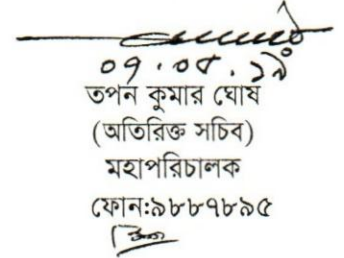 ০৭.০৫.১৯
তপন কুমার ঘোষ
(অতিরিক্ত সচিব)
মহাপরিচালক
ফোন:৯৮৮৭৮৯৫